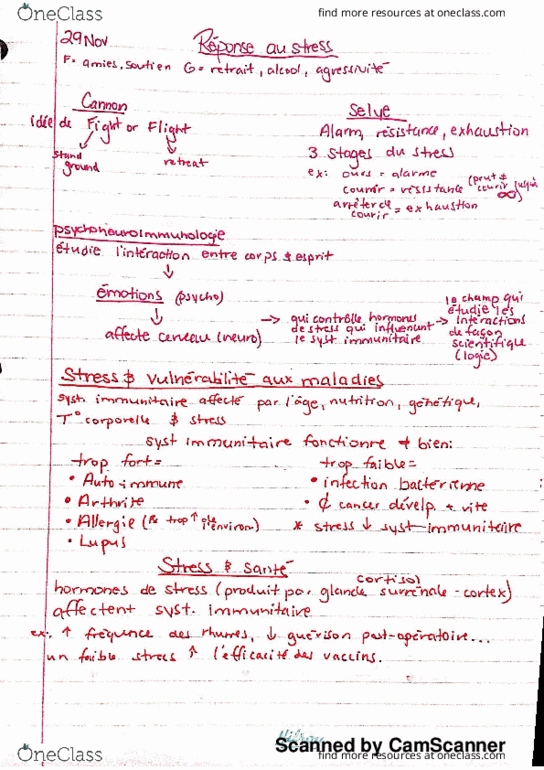 OneClass
find more resources at oneclass.com
29 Nov
Réponse au stress
F= amies, soutien G= retrait, alcool, agressivité
Cannon
idée de Fight or Flight
stand ground
retreat
Selye
Alarm, résistance, exhaustion
3 stages du stress
ex: ours = alarme
courir = résistance
courir jusqu'à ∞
arrêter de courir = exhaustion
psychoneuroimmunologie
étudie l'intéraction entre corps & esprit
↓
émotions (psycho)
↓
affecte cerveau (neuro)
→ qui contrôle hormones
de stress qui influencent
le syst immunitaire
→ le champ qui
étudie les
intéractions
de façon
scientifique
(logie)
Stress & vulnérabilité aux maladies
syst. immunitaire affecté par l'âge, nutrition, génétique,
T° corporelle & stress
syst immunitaire fonctionne + bien:
trop fort=
• Auto-immune
• Arthrite
• Allergie
• Lupus
trop faible=
• infection bactérienne
• cancer dévelp. + vite
* stress ↓ syst immunitaire
Stress & santé
cortisol
hormones de stress (produit par glande surrénale-cortex)
affectent syst. immunitaire
ex: ↑ fréquence des rhumes, ↓ guérison post-opératoire...
un faible stress ↑ l'efficacité des vaccins.
Scanned by CamScanner
OneClass
find more resources at oneclass.com